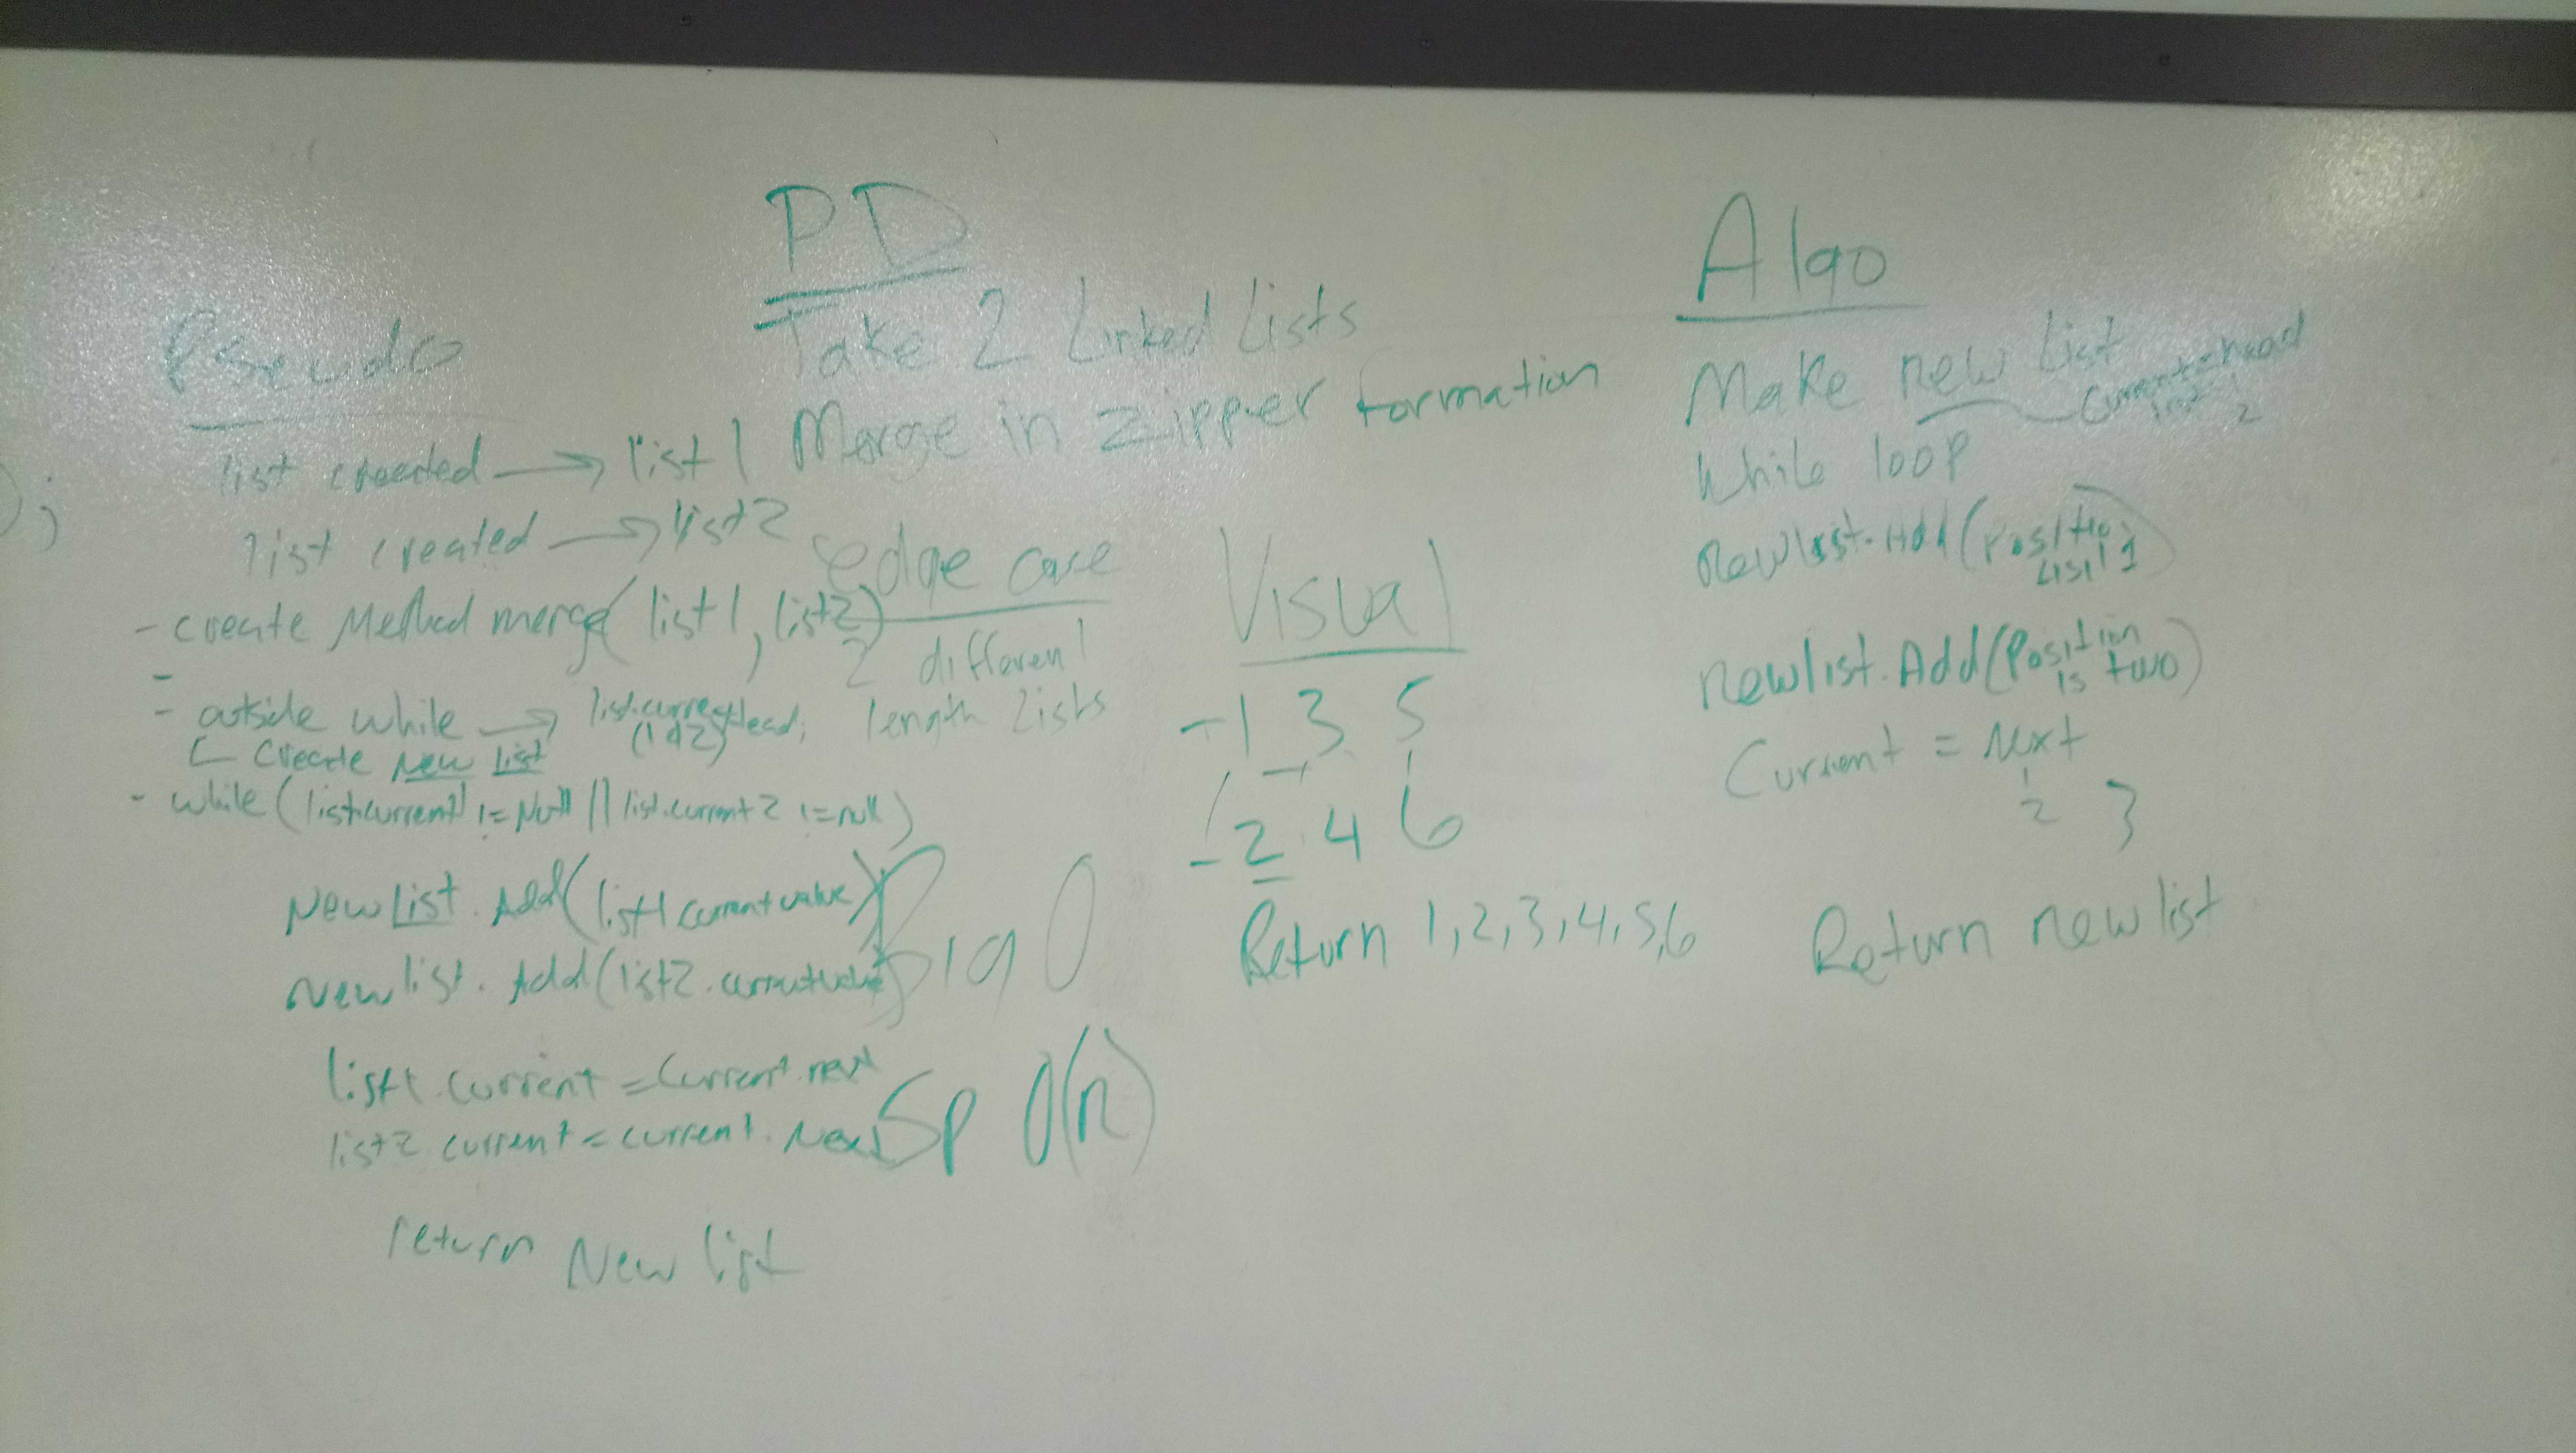 PD
Take 2 Linked Lists
Merge in Zipper formation
Pseudo
list created → list 1
list created → list2
- create Method merge(list1, list2)
-
- outside while → list.current = head;
(1 & 2)
Create New List
- while (list.current1 != Null || list.current2 != null)
NewList.Add(list1 current value)
Newlist.Add(list2.current value)
list1.current = current.next
list2 current = current.Next
return New list
edge case
2 different
length Lists
Big O
Sp O(n)
Visual
- 1 3 5
- 2 4 6
Return 1,2,3,4,5,6
Algo
Make new List
Current = head
1
2
While loop
Newlist.Add(Position
List 1)
Newlist.Add(Position
is two)
Current = Next
1
2
3
Return newlist
);